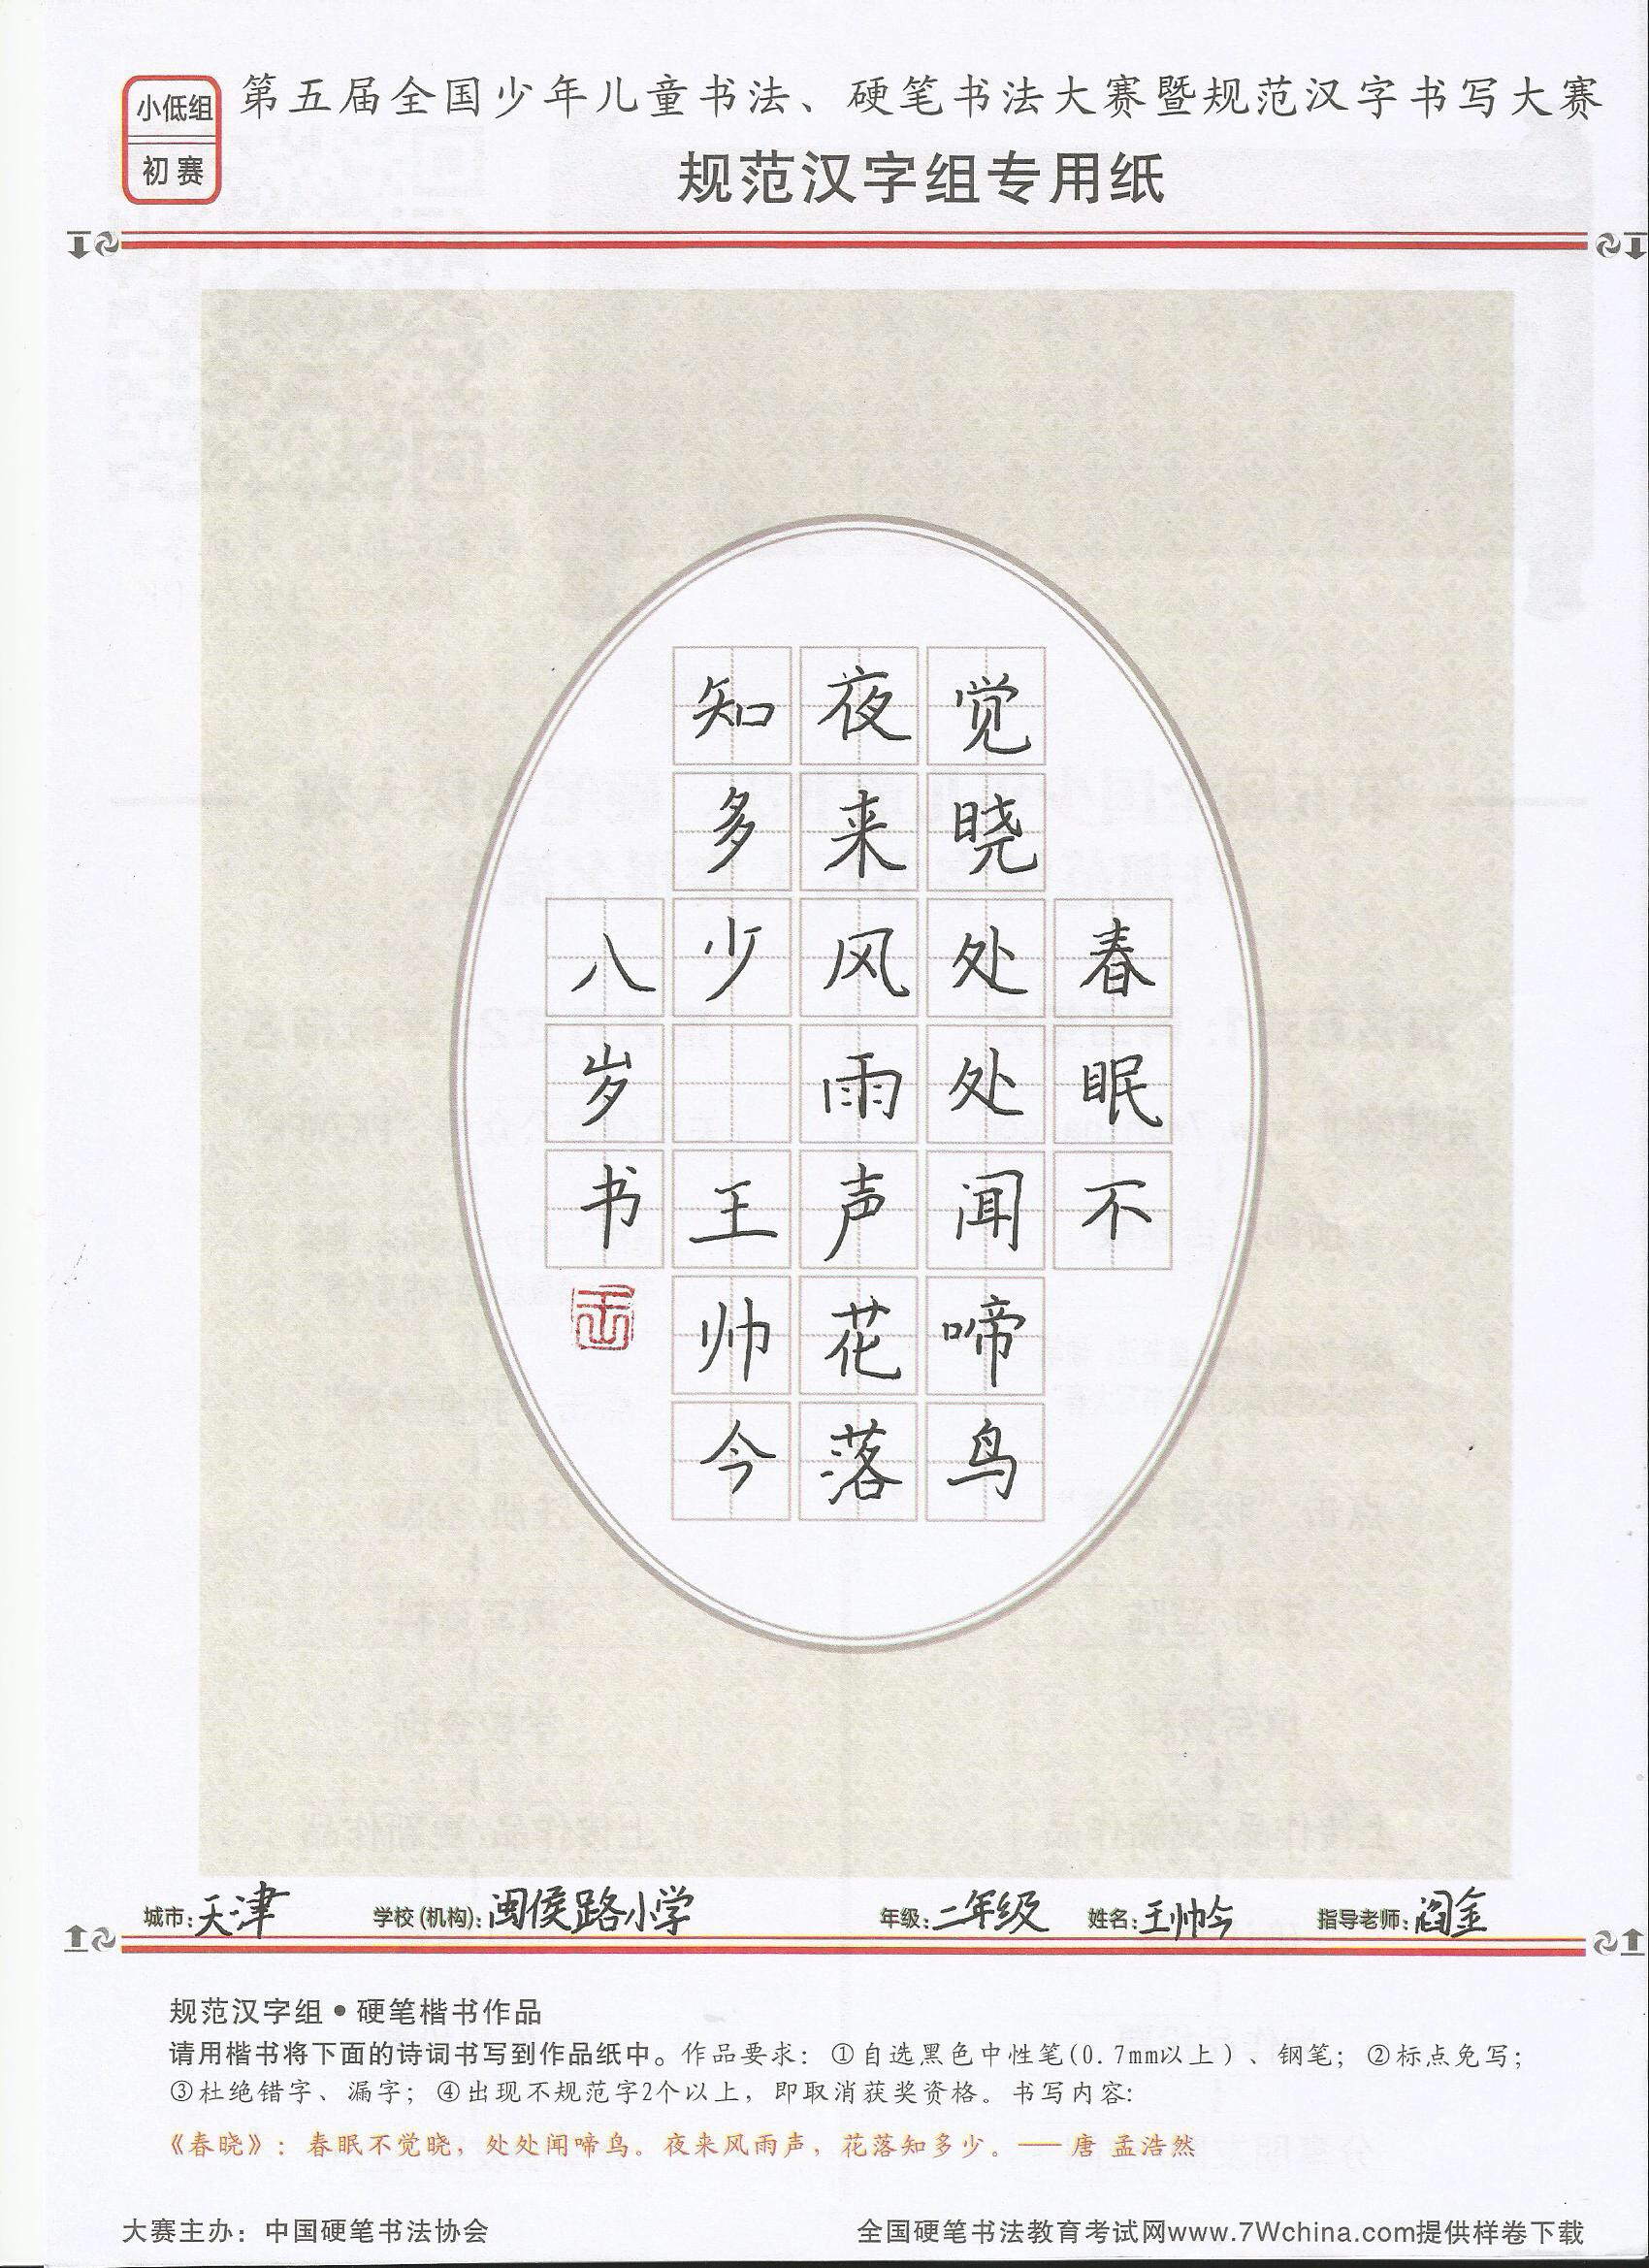 小低组
初赛
第五届全国少年儿童书法、硬笔书法大赛暨规范汉字书写大赛
规范汉字组专用纸
春眠不
觉晓处处闻啼鸟
夜来风雨声花落
知多少 王帅今
八岁书
城市:天津 学校(机构):闽侯路小学 年级:二年级 姓名:王帅今 指导老师:阎金
规范汉字组•硬笔楷书作品
请用楷书将下面的诗词书写到作品纸中。作品要求：①自选黑色中性笔(0.7mm以上)、钢笔；②标点免写；
③杜绝错字、漏字；④出现不规范字2个以上，即取消获奖资格。书写内容:
《春晓》：春眠不觉晓，处处闻啼鸟。夜来风雨声，花落知多少。——唐 孟浩然
大赛主办：中国硬笔书法协会
全国硬笔书法教育考试网www.7Wchina.com提供样卷下载